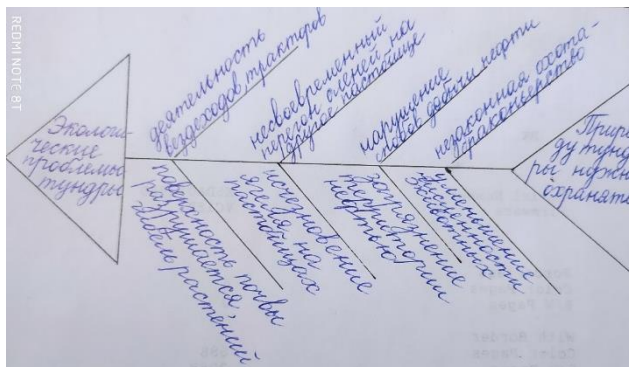 REDMI NOTE 8T
Экологи-
ческие
проблемы
тундры
деятельность
вездеходов, тракторов
несвоевременный
перегон оленей на
другое пастбище
нарушение
добычи нефти
незаконная охота-
браконьерство
поверхность почвы
разрушается,
гибель растений
исчезновение
ягеля на
пастбищах
загрязнение
территории
нефтью
уменьшение
численности
животных
Приро
ду тунд
ры нужн
охранять